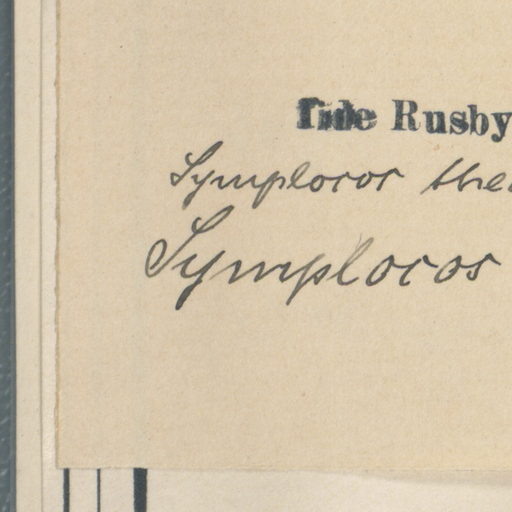 fide Rusby
Symplocos the
Symplocos